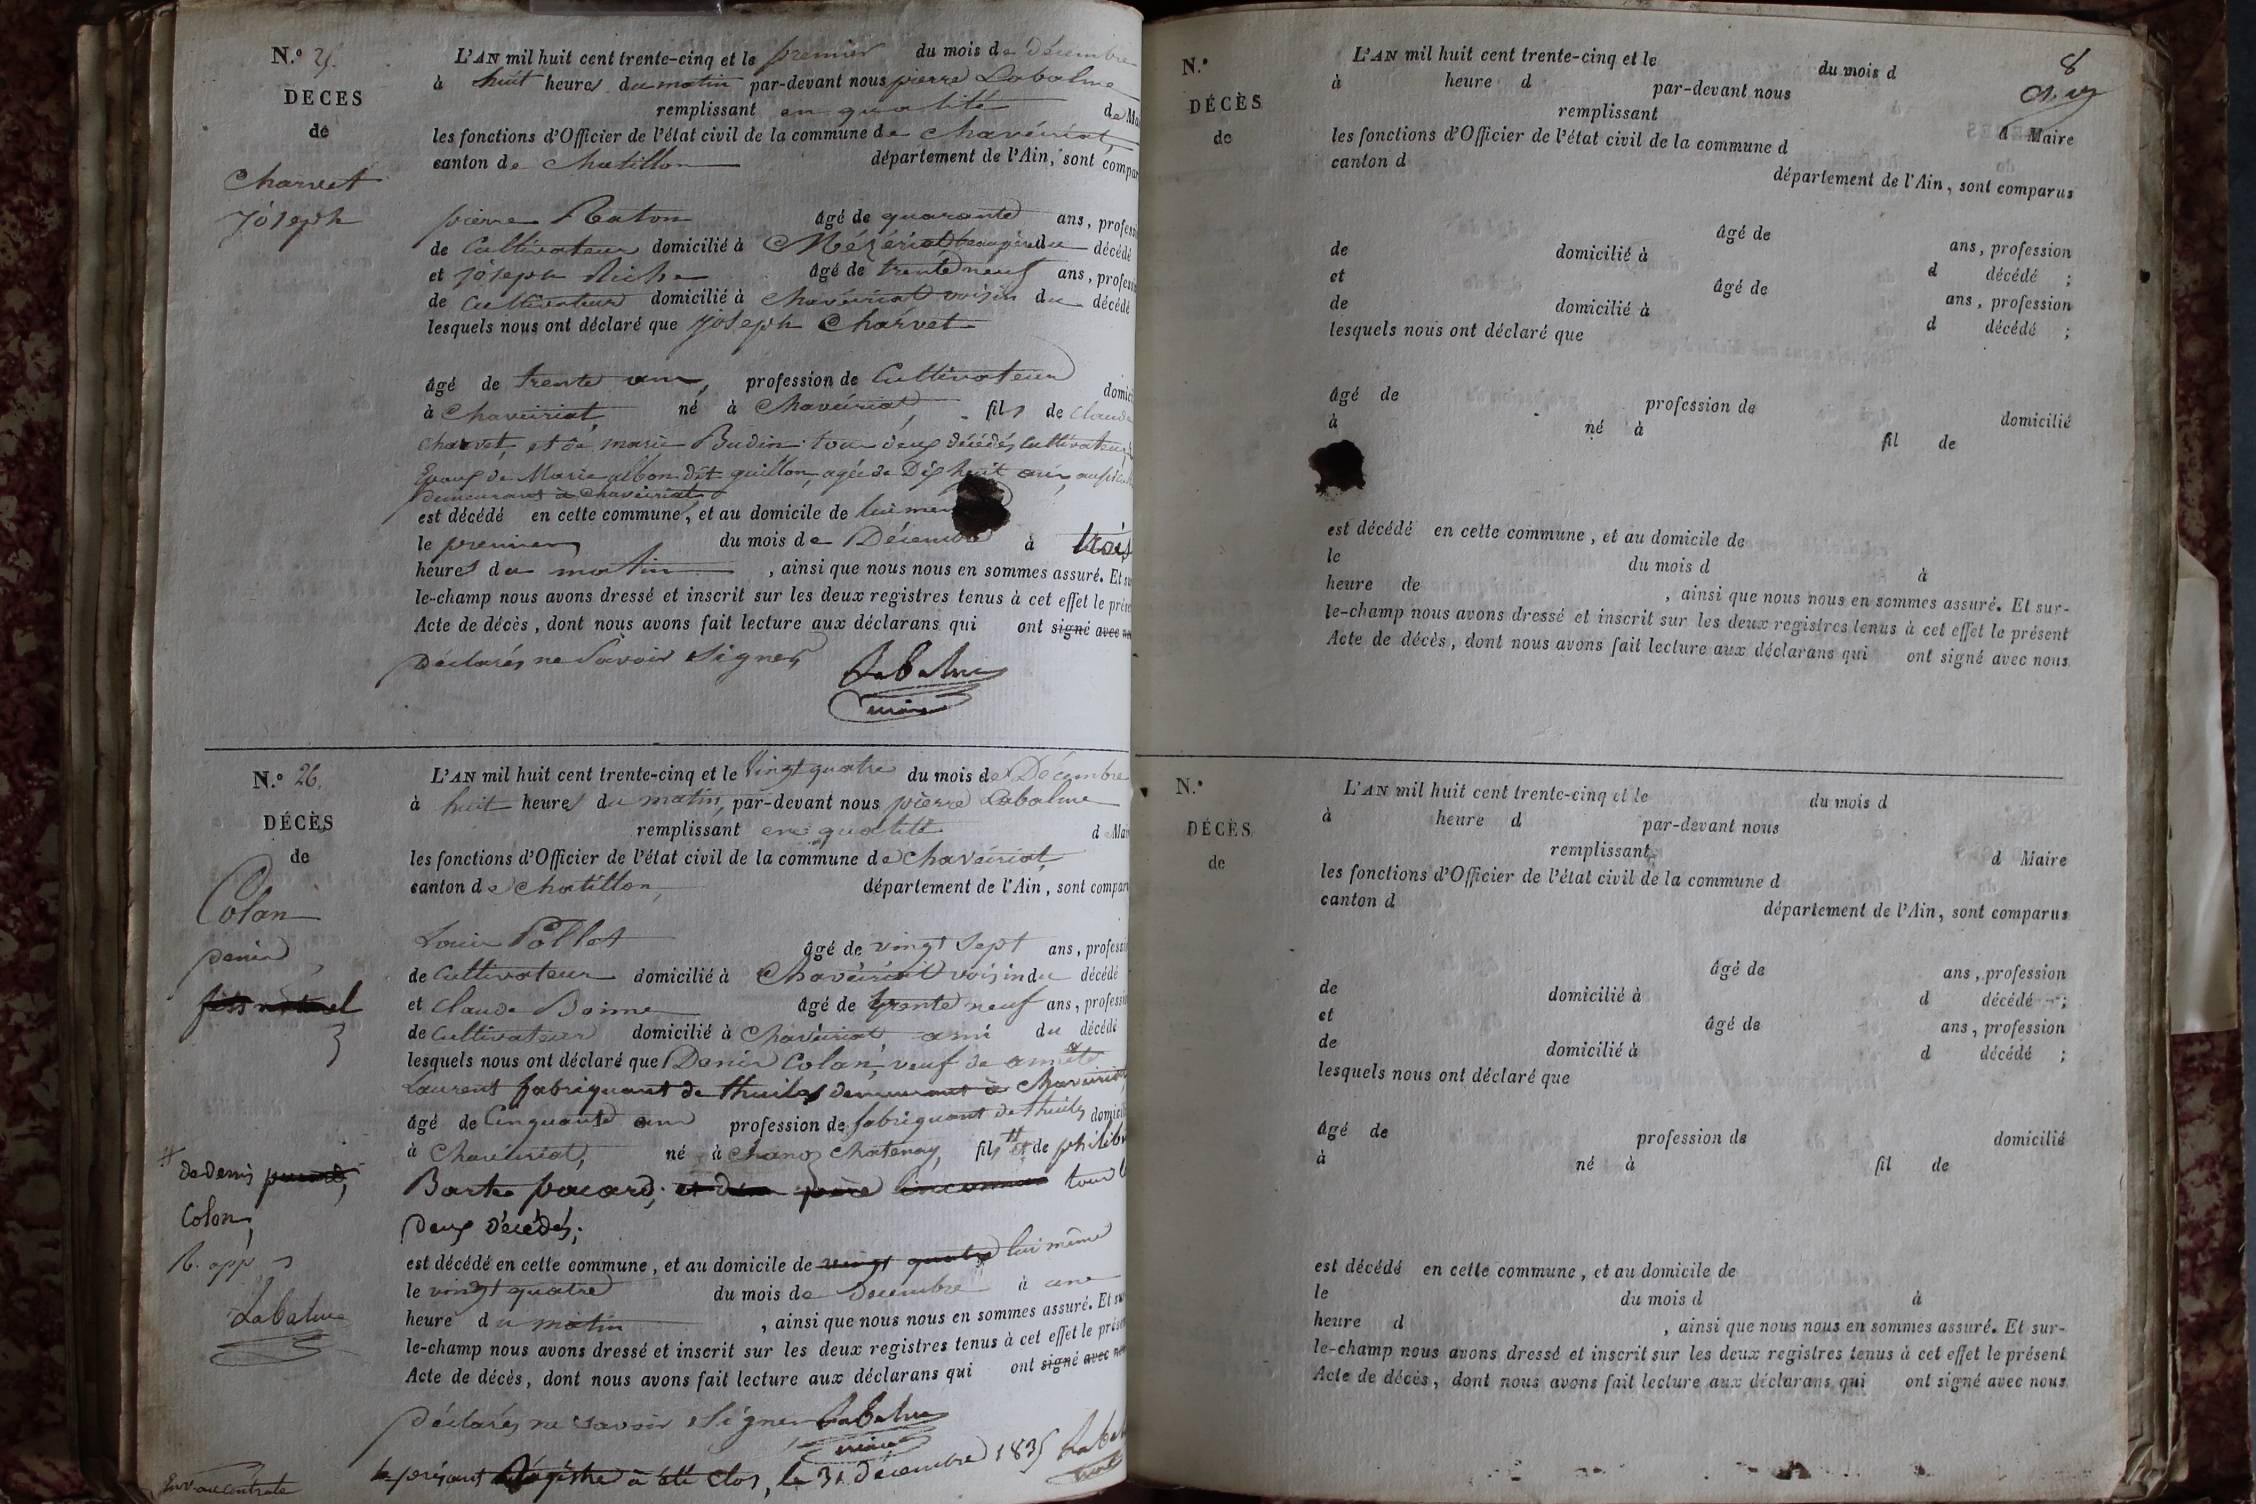 N.° 25.
DECES
de
Charvet
Joseph
L'AN mil huit cent trente-cinq et le premier du mois de décembre
à huit heures du matin par-devant nous pierre Labalme
remplissant en qualité de Mai
les fonctions d'Officier de l'état civil de la commune de chavéiriat,
canton de Chatillon département de l'Ain, sont compar
pierre Raton âgé de quarante ans, professi
de Cultivateur domicilié à Mézériat beaupère du décédé
et joseph Riche âgé de trente neuf ans, professi
de Cultivateur domicilié à Chavéiriat voisin du décédé
lesquels nous ont déclaré que joseph Charvet
âgé de trente ans, profession de Cultivateur domici
à Chaveiriat, né à Chavéiriat, fils de claude
charvet, et de marie Budin tous deux décédés Cultivateurs
Epoux de Marie albon dit guillon, agée de Dix huit ans,
demeurant à chaveiriat
est décédé en cette commune, et au domicile de lui mem
le premier du mois de Décembre à trois
heures du matin, ainsi que nous nous en sommes assuré. Et su
le-champ nous avons dressé et inscrit sur les deux registres tenus à cet effet le prése
Acte de décès, dont nous avons fait lecture aux déclarans qui ont signé avec no
Déclarés ne Savoir signer Labalme
maire
N.° 26.
DÉCÈS
de
Colan
denis
fils naturel
L'AN mil huit cent trente-cinq et le Vingt quatre du mois de Décembre
à huit heures du matin, par-devant nous pierre Labalme
remplissant en qualité de Mai
les fonctions d'Officier de l'état civil de la commune de chaveiriat,
canton de Chatillon, département de l'Ain, sont compar
Louis Pollet âgé de vingt sept ans, professi
de Cultivateur domicilié à Chavéiriat voisin du décédé
et Claude Bonne âgé de trente neuf ans, professi
de Cultivateur domicilié à Chavéiriat ami du décédé
lesquels nous ont déclaré que Denis Colan, veuf de
Laurent fabriquant de thuiles demeurant à Chaveiriat,
âgé de Cinquante ans profession de fabriquant de thuiles domicili
à Chavéiriat, né à Chanoz Chatenay, fils # et de philib
Barthe pacard, et d'un père inconnu tous l
Deux Décédés;
# de Denis
Colon,
R. app
Labalme
est décédé en cette commune, et au domicile de vingt quatre lui même
le vingt quatre du mois de Décembre à une
heure du matin, ainsi que nous nous en sommes assuré. Et su
le-champ nous avons dressé et inscrit sur les deux registres tenus à cet effet le prése
Acte de décès, dont nous avons fait lecture aux déclarans qui ont signé avec no
Déclarés ne Savoir signer Labalme
maire
le présant Régistre à été Clos, le 31 décembre 1835 Labal
8
N.°
DÉCÈS
de
L'AN mil huit cent trente-cinq et le du mois d
à heure d par-devant nous
remplissant d Maire
les fonctions d'Officier de l'état civil de la commune d
canton d département de l'Ain, sont comparus
âgé de ans, profession
de domicilié à d décédé ;
et âgé de ans, profession
de domicilié à d décédé ;
lesquels nous ont déclaré que
âgé de profession de domicilié
à né à fil de
est décédé en cette commune, et au domicile de
le du mois d à
heure de , ainsi que nous nous en sommes assuré. Et sur-
le-champ nous avons dressé et inscrit sur les deux registres tenus à cet effet le présent
Acte de décès, dont nous avons fait lecture aux déclarans qui ont signé avec nous
N.°
DÉCÈS
de
L'AN mil huit cent trente-cinq et le du mois d
à heure d par-devant nous
remplissant d Maire
les fonctions d'Officier de l'état civil de la commune d
canton d département de l'Ain, sont comparus
âgé de ans, profession
de domicilié à d décédé ;
et âgé de ans, profession
de domicilié à d décédé ;
lesquels nous ont déclaré que
âgé de profession de domicilié
à né à fil de
est décédé en cette commune, et au domicile de
le du mois d à
heure d , ainsi que nous nous en sommes assuré. Et sur-
le-champ nous avons dressé et inscrit sur les deux registres tenus à cet effet le présent
Acte de décès, dont nous avons fait lecture aux déclarans qui ont signé avec nous